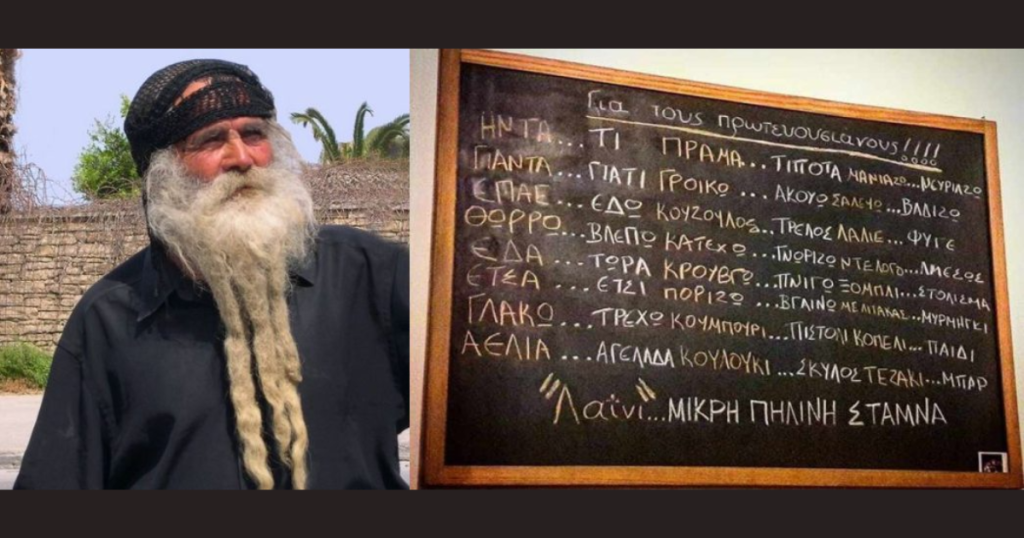 Για τους πρωτευουσιανους!!!!
ΗΝΤΑ...ΤΙ ΠΡΑΜΑ...ΤΙΠΟΤΑ ΜΑΝΙΑΖΩ...ΝΕΥΡΙΑΖΩ
ΓΙΑΝΤΑ...ΓΙΑΤΙ ΓΡΟΙΚΩ...ΑΚΟΥΩ ΣΑΛΕΥΩ...ΒΑΔΙΖΩ
ΕΠΑΕ...ΕΔΩ ΚΟΥΖΟΥΛΟΣ...ΤΡΕΛΟΣ ΛΑΛΙΕ...ΦΥΓΕ
ΘΩΡΡΩ...ΒΛΕΠΩ ΚΑΤΕΧΩ...ΓΝΩΡΙΖΩ ΝΤΕΛΟΓΟ...ΑΜΕΣΩΣ
ΕΔΑ...ΤΩΡΑ ΚΡΟΥΒΓΩ...ΠΝΙΓΩ ΞΟΜΠΛΙ...ΣΤΟΛΙΣΜΑ
ΕΤΣΑ...ΕΤΣΙ ΠΟΡΙΖΩ...ΒΓΑΙΝΩ ΜΕΛΙΤΑΚΑΣ...ΜΥΡΜΗΓΚΙ
ΓΛΑΚΩ...ΤΡΕΧΩ ΚΟΥΜΠΟΥΡΙ...ΠΙΣΤΟΛΙ ΚΟΠΕΛΙ...ΠΑΙΔΙ
ΑΕΛΙΑ...ΑΓΕΛΑΔΑ ΚΟΥΛΟΥΚΙ...ΣΚΥΛΟΣ ΤΕΖΑΚΙ...ΜΠΑΡ
"Λαϊνι"...ΜΙΚΡΗ ΠΗΛΙΝΗ ΣΤΑΜΝΑ